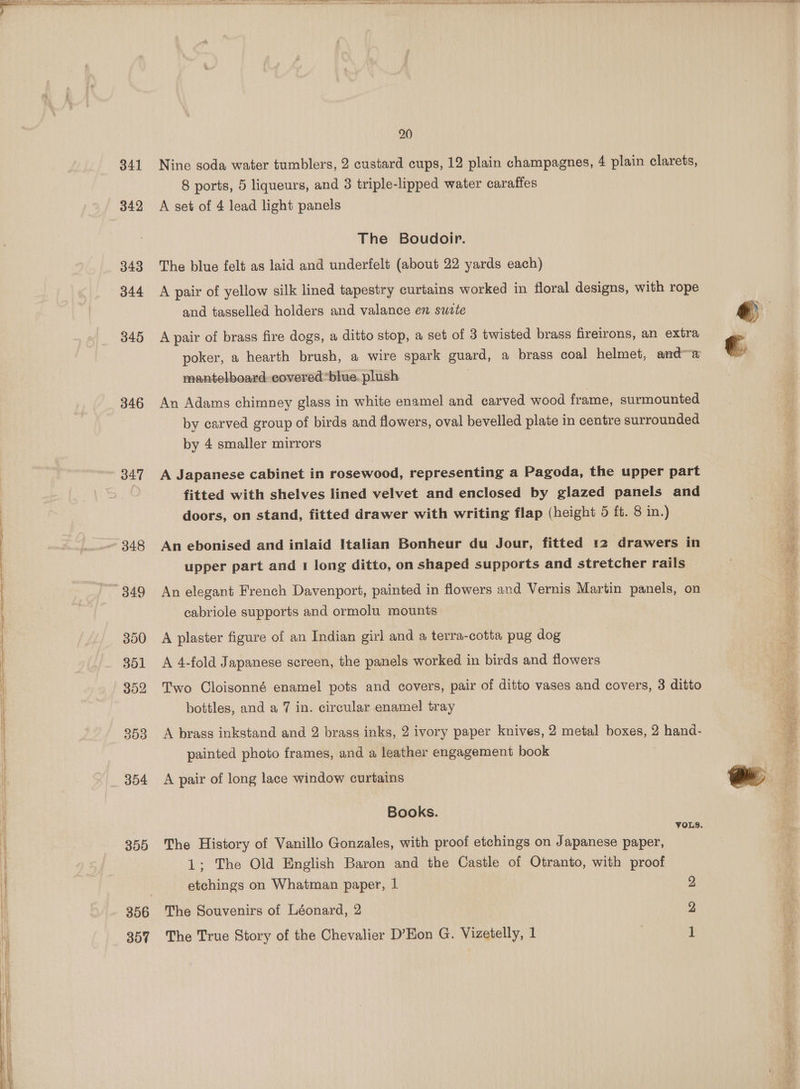 20
341 Nine soda water tumblers, 2 custard cups, 12 plain champagnes, 4 plain clarets,
8 ports, 5 liqueurs, and 3 triple-lipped water caraffes
342 A set of 4 lead light panels
The Boudoir.
343 The blue felt as laid and underfelt (about 22 yards each)
344 A pair of yellow silk lined tapestry curtains worked in floral designs, with rope
and tasselled holders and valance en suite
345 A pair of brass fire dogs, a ditto stop, a set of 3 twisted brass fireirons, an extra
poker, a hearth brush, a wire spark guard, a brass coal helmet, and a
mantelboard covered blue plush
346 An Adams chimney glass in white enamel and carved wood frame, surmounted
by carved group of birds and flowers, oval bevelled plate in centre surrounded
by 4 smaller mirrors
347 A Japanese cabinet in rosewood, representing a Pagoda, the upper part
fitted with shelves lined velvet and enclosed by glazed panels and
doors, on stand, fitted drawer with writing flap (height 5 ft. 8 in.)
348 An ebonised and inlaid Italian Bonheur du Jour, fitted 12 drawers in
upper part and 1 long ditto, on shaped supports and stretcher rails
349 An elegant French Davenport, painted in flowers and Vernis Martin panels, on
cabriole supports and ormolu mounts
350 A plaster figure of an Indian girl and a terra-cotta pug dog
351 A 4-fold Japanese screen, the panels worked in birds and flowers
352 Two Cloisonné enamel pots and covers, pair of ditto vases and covers, 3 ditto
bottles, and a 7 in. circular enamel tray
353 A brass inkstand and 2 brass inks, 2 ivory paper knives, 2 metal boxes, 2 hand-
painted photo frames, and a leather engagement book
354 A pair of long lace window curtains
Books.
VOLS.
355 The History of Vanillo Gonzales, with proof etchings on Japanese paper,
1; The Old English Baron and the Castle of Otranto, with proof
etchings on Whatman paper, 1 2
356 The Souvenirs of Léonard, 2 2
357 The True Story of the Chevalier D'Eon G. Vizetelly, 1 1